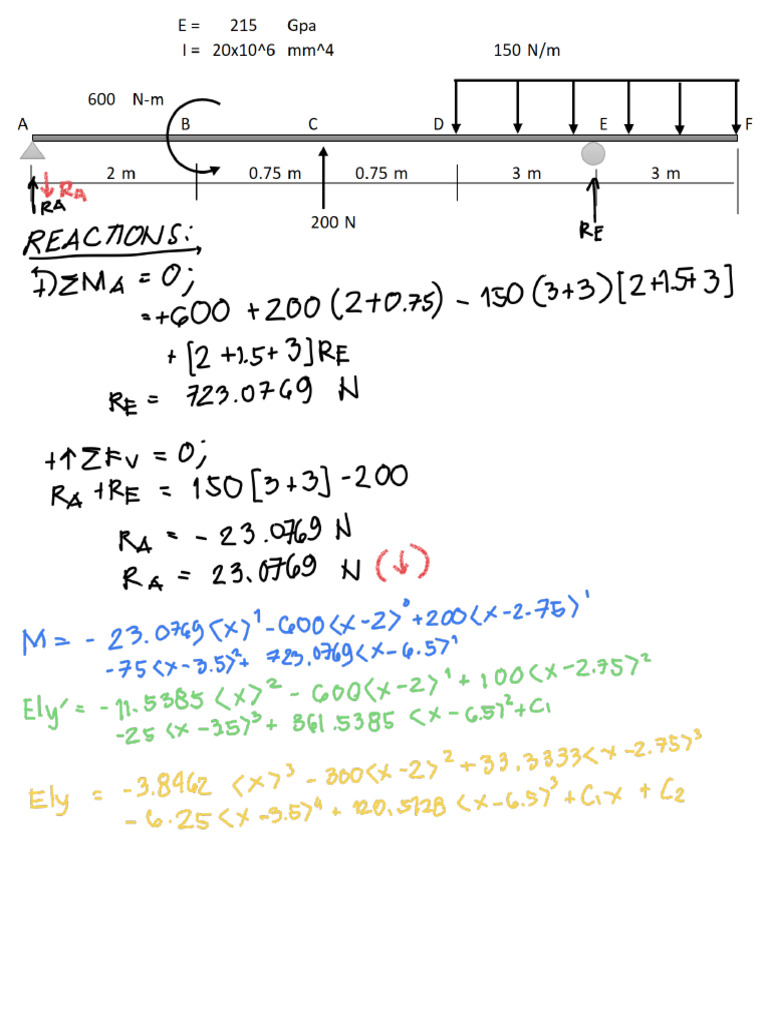 E = 215 Gpa
I = 20x10^6 mm^4 150 N/m
600 N-m
A B C D E F
2 m 0.75 m 0.75 m 3 m 3 m
↓ RA
RA
200 N
RE
REACTIONS:
+) ΣMA = 0;
= +600 + 200 (2+0.75) - 150 (3+3) [2+1.5+3]
+ [2 +1.5+ 3] RE
RE = 723.0769 N
+↑ ΣFV = 0;
RA + RE = 150 [3+3] - 200
RA = - 23.0769 N
RA = 23.0769 N (↓)
M = - 23.0769 <x>^1 - 600 <x-2>^0 + 200 <x-2.75>^1
-75 <x-3.5>^2 + 723.0769 <x-6.5>^1
EIy' = -11.5385 <x>^2 - 600 <x-2>^1 + 100 <x-2.75>^2
-25 <x-3.5>^3 + 361.5385 <x-6.5>^2 + C1
EIy = -3.8462 <x>^3 - 300 <x-2>^2 + 33.3333 <x-2.75>^3
- 6.25 <x-3.5>^4 + 120.5128 <x-6.5>^3 + C1x + C2